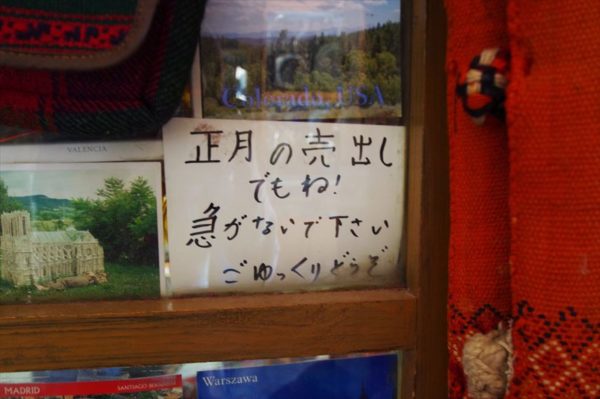 Colorado, USA
VALENCIA
正月の売出し
でもね!
急がないで下さい
ごゆっくりどうぞ
MADRID
Warszawa